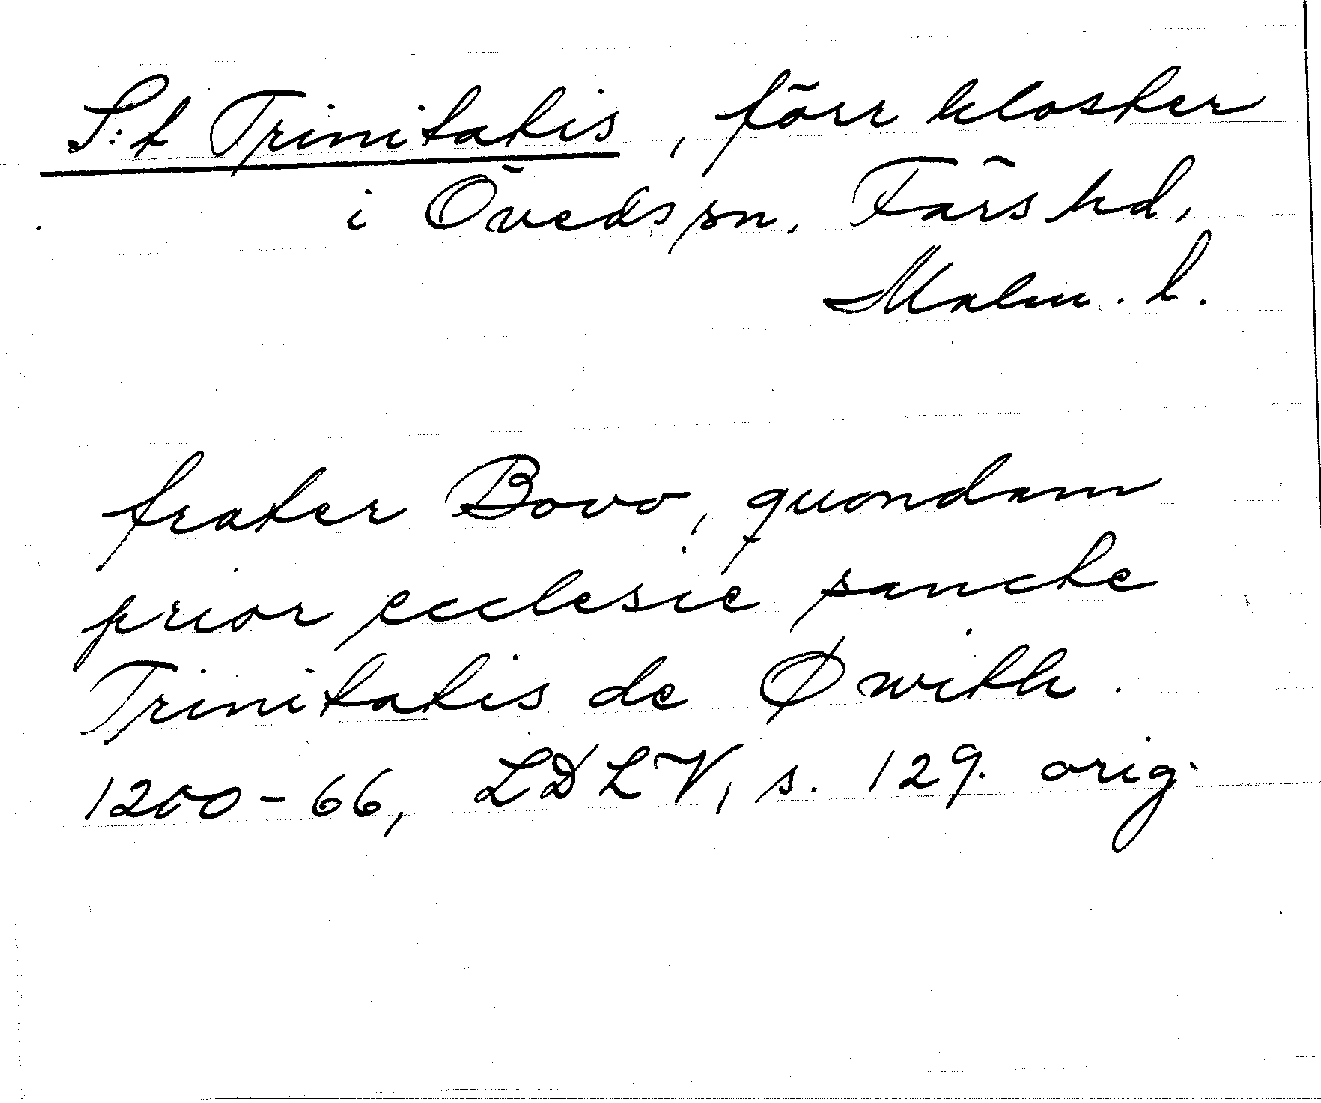 S:t Trinitatis, förr kloster
i Öveds sn. Färs hd,
Malm. l.
frater Bovo, quondam
prior ecclesie sancte
Trinitatis de Øwith
1200-66, LDLV, s. 129. orig.